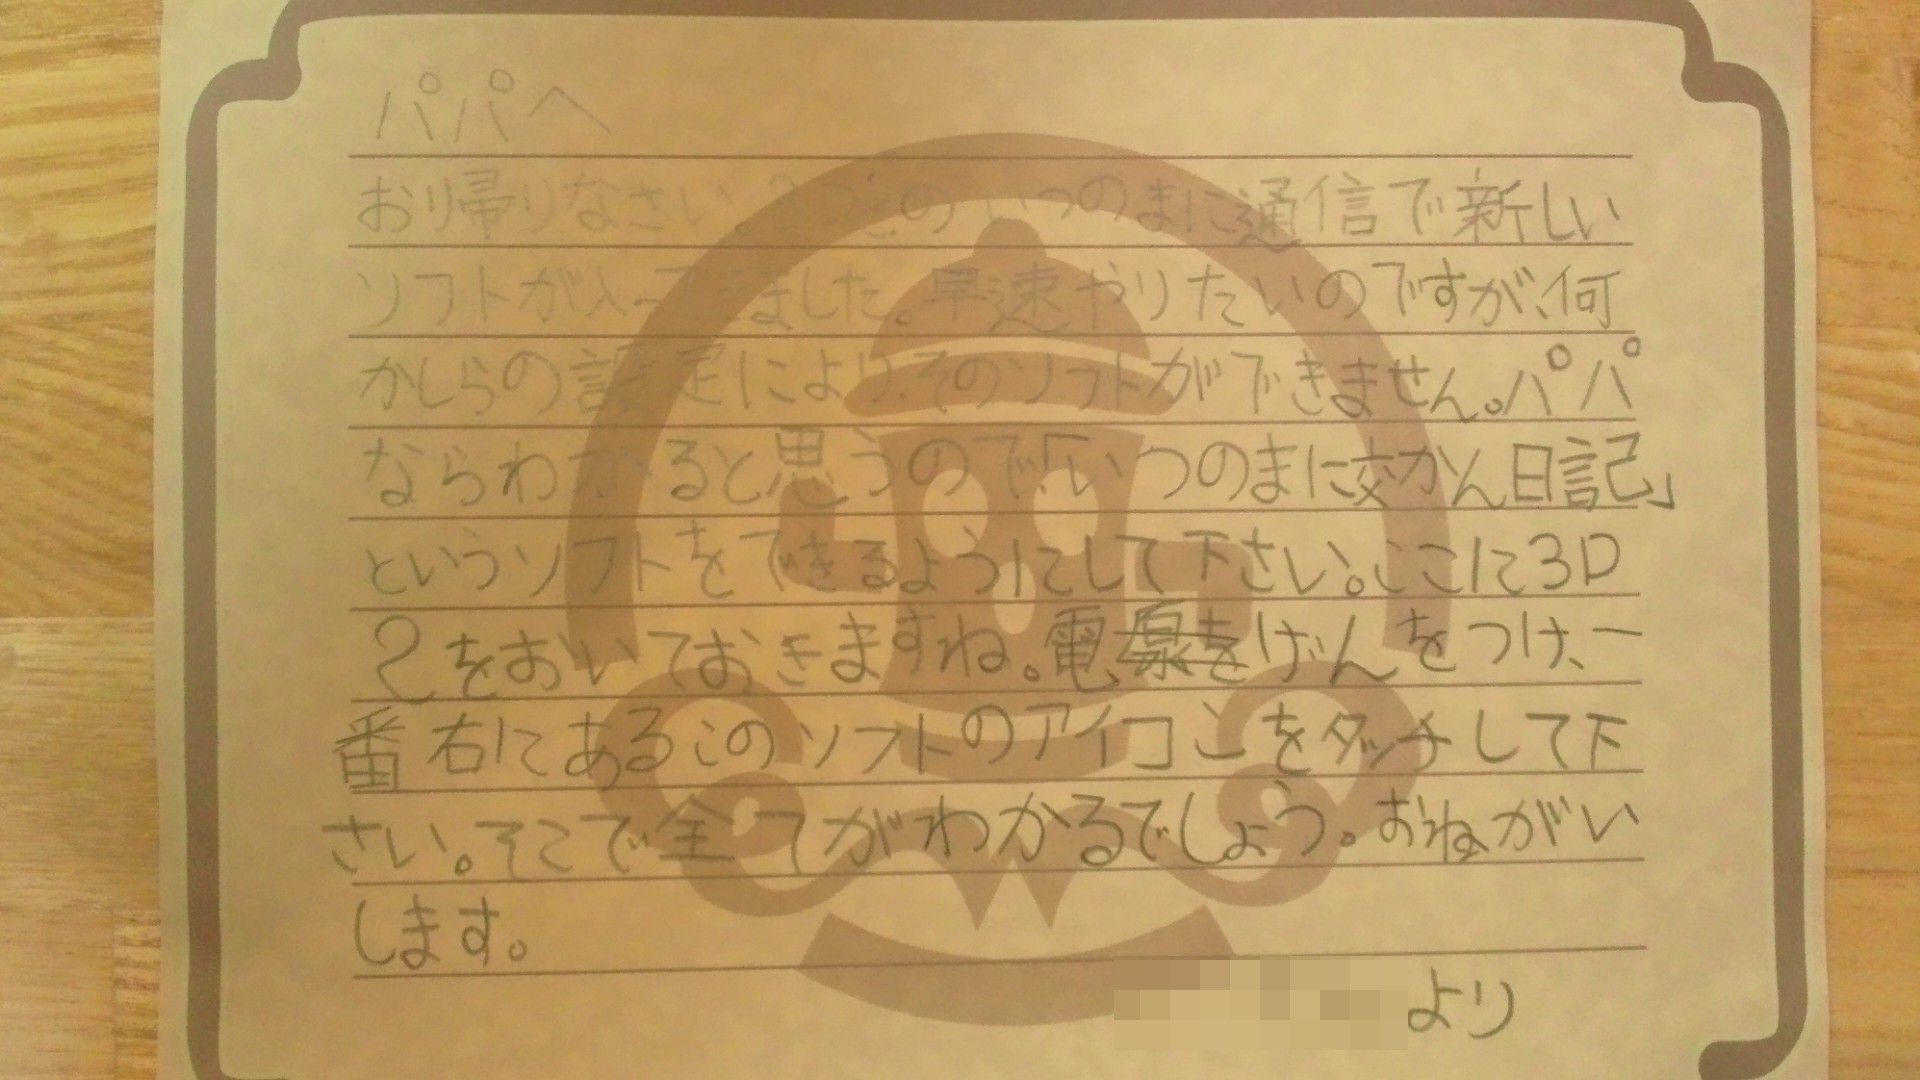 パパへ
おり帰りなさい。のいつのまに通信で新しい
ソフトが入ってきました。早速やりたいのですが、何
かしらの設定により、そのソフトができません。パパ
ならわかると思うので「いつのまに交かん日記」
というソフトをできるようにして下さい。ここに3D
Sをおいておきますね。電げんをつけ、一
番右にあるこのソフトのアイコンをタッチして下
さい。そこで全てがわかるでしょう。おねがい
します。
より